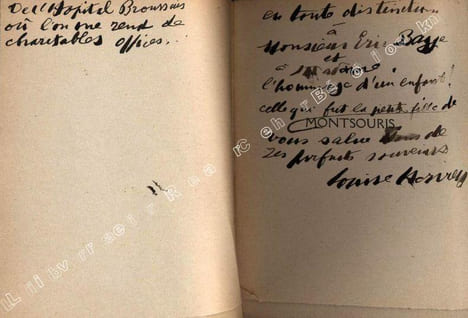 De l'Hôpital Broussais
où l'on me rend de
charitables offices.
en toute distinction
à
Monsieur Eric
et
à
l'hommage d'un enfant!
celle qui fut la petite fille de
MONTSOURIS
vous salue de
ses parfaits souvenirs
Louise